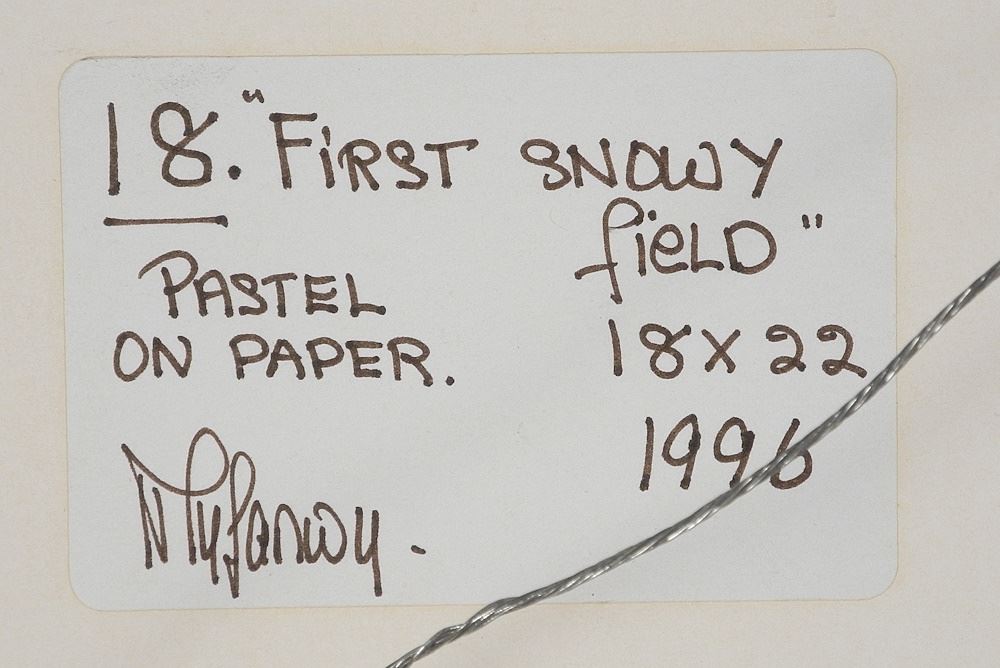 18. "FiRST SNOWY
fieLD"
PASTEL
ON PAPER.
18 x 22
1996
Myfanwy.